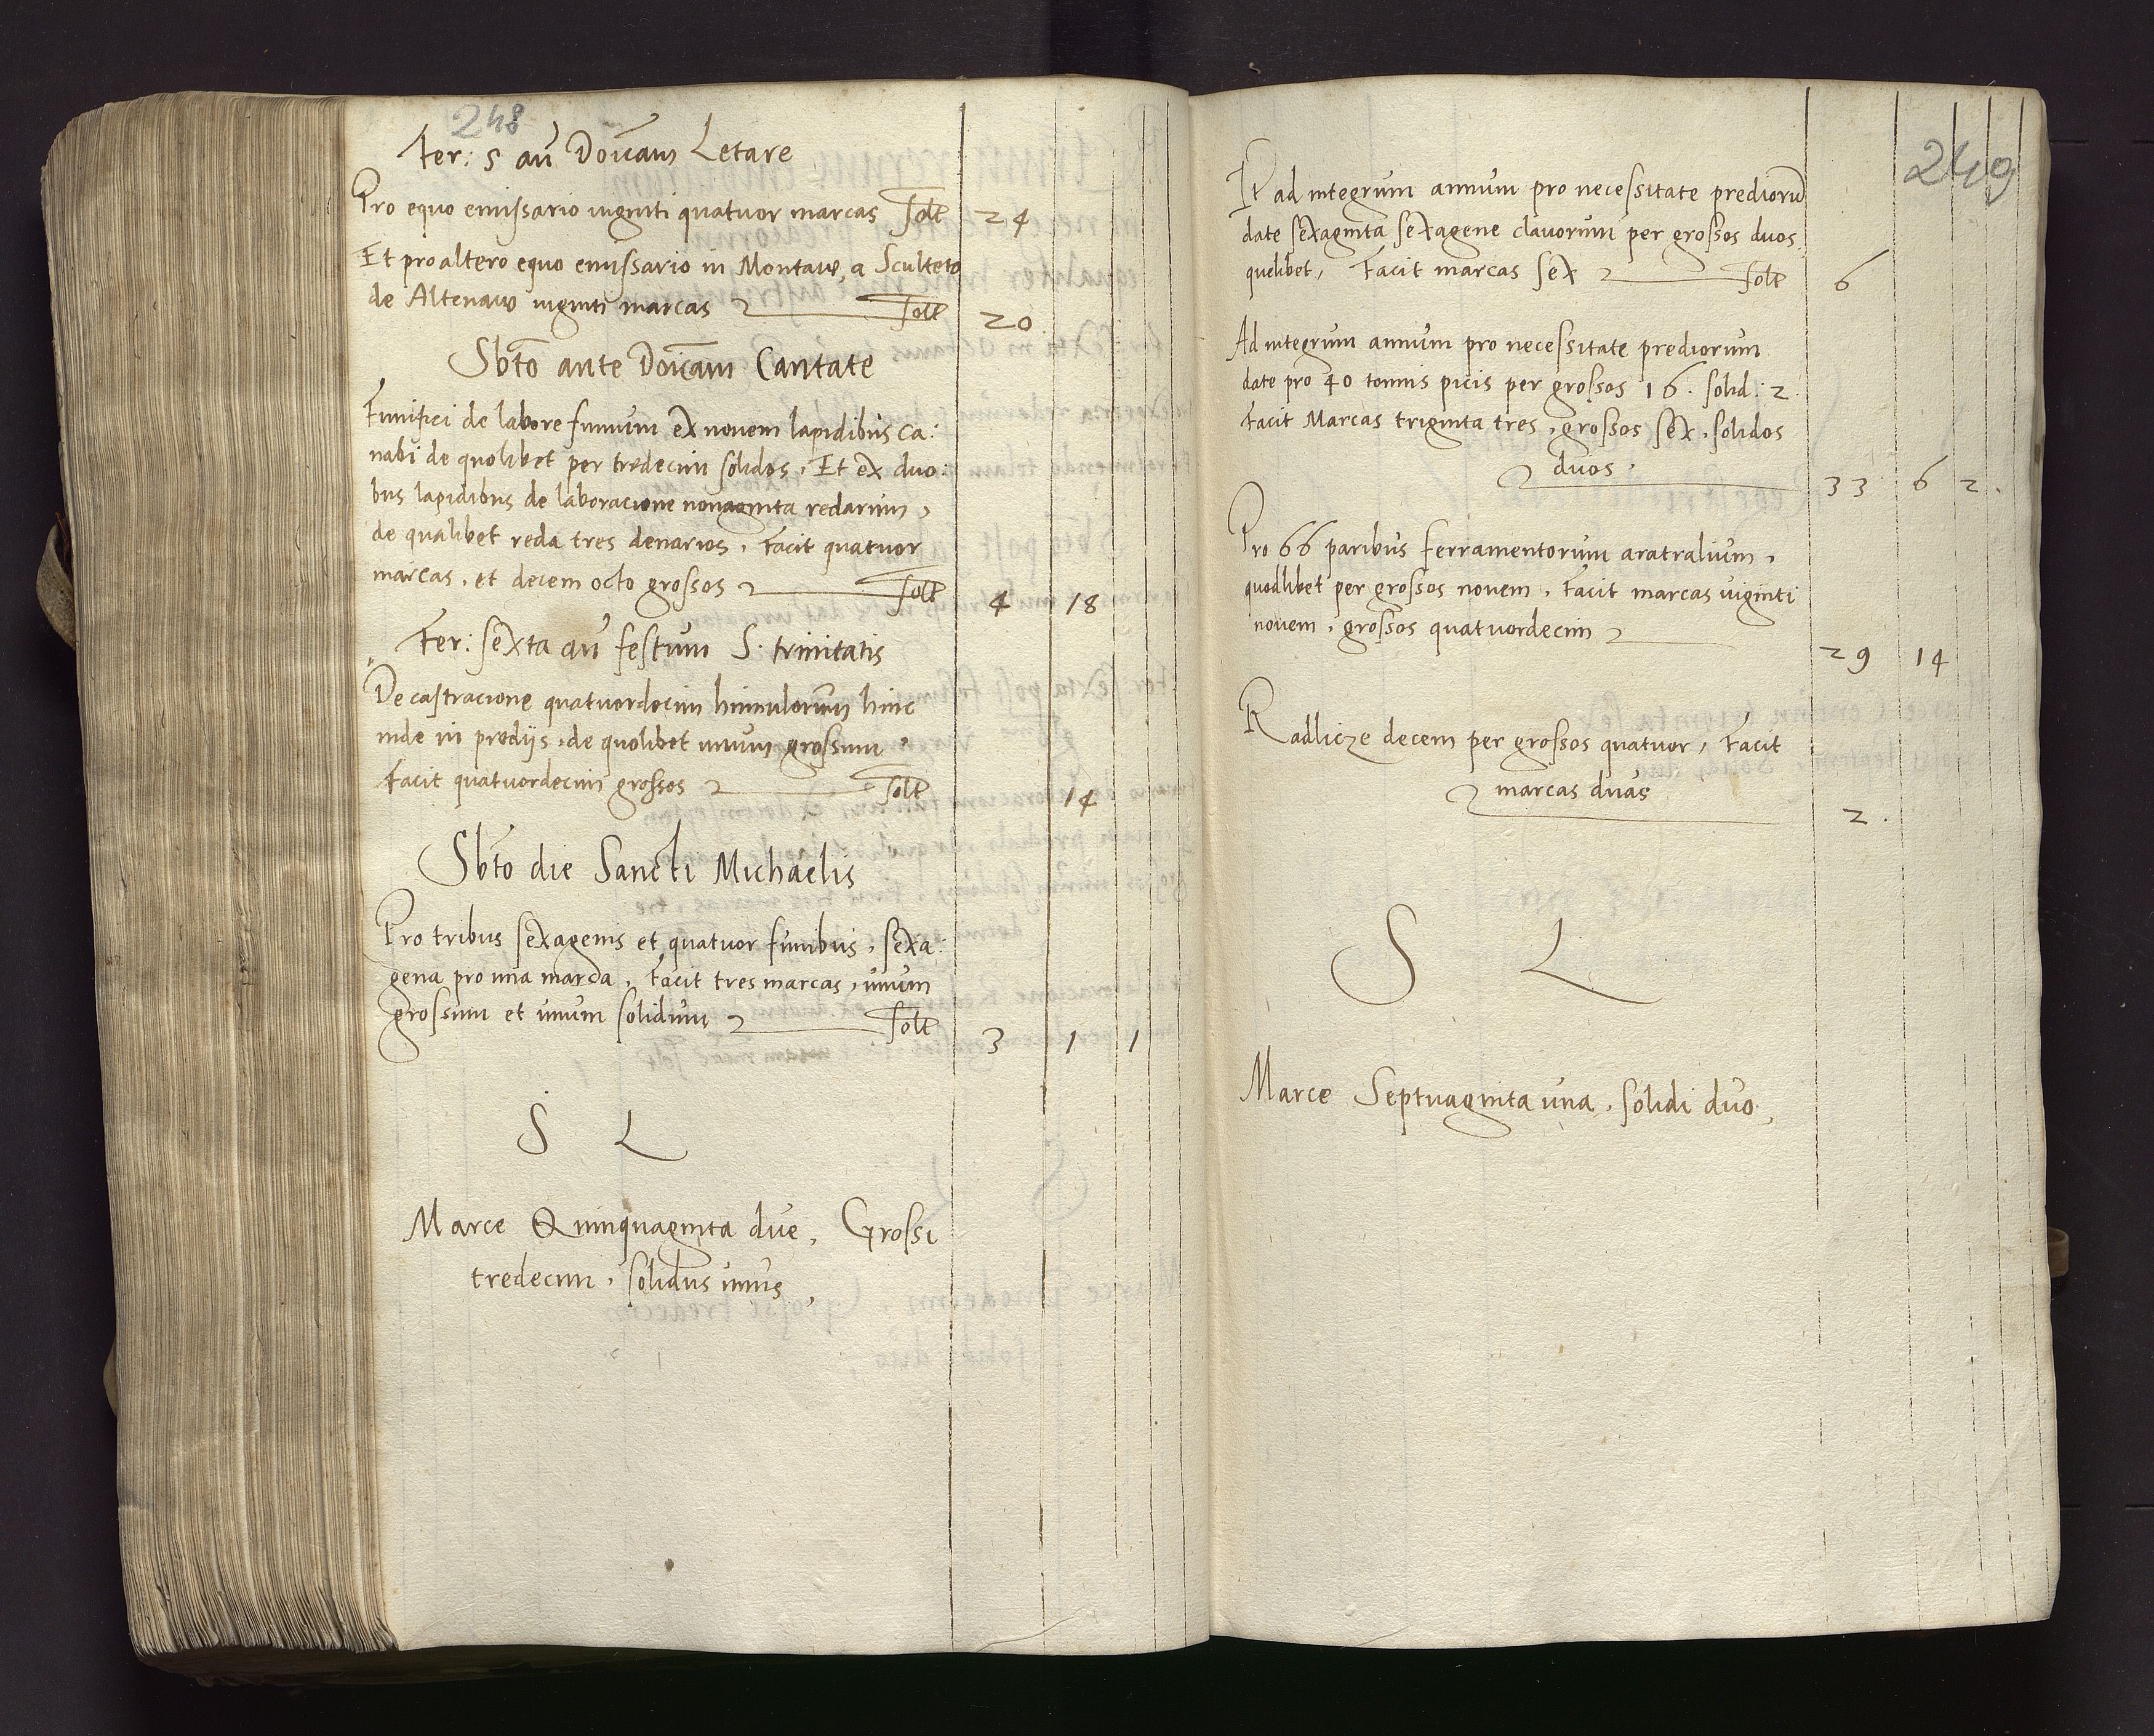 248
Fer: 5 an̄ Doīcam Letare
Pro equo emissario viginti quatuor marcas solt 24
Et pro altero equo emissario in Montaw, a Sculteto
de Altenaw viginti marcas solt 20
Sbt̄o ante Doīcam Cantate
Funifici de labore funium ex novem lapidibus ca:
nabi de quolibet per tredecim solidos, Et ex duo:
bus lapidibus de laboracione nonaginta redarum,
de qualibet reda tres denarios, Facit quatuor
marcas, et decem octo grossos solt 4 18
Fer: sexta an̄ festum S. trinitatis
De castracione quatuordecim hinnulorum hinc
inde in prediis, de quolibet unum grossum,
Facit quatuordecim grossos solt 14
Sbt̄o die Sancti Michaelis
Pro tribus sexagenis et quatuor funibus, sexa:
gena pro una marca, Facit tres marcas, unum
grossum et unum solidum solt 3 1 1
S L
Marce Quinquaginta due, Grossi
tredecim, solidus unus,
249
Et ad integrum annum pro necessitate prediorū
date sexaginta sexagene clavorum per grossos duos
quelibet, Facit marcas sex solt 6
Ad integrum annum pro necessitate prediorum
date pro 40 tonnis picis per grossos 16. solid: 2.
Facit Marcas triginta tres, grossos sex, solidos
duos. 33 6 2.
Pro 66 paribus ferramentorum aratralium,
quodlibet per grossos novem, Facit marcas viginti
novem, grossos quatuordecim 29 14
Radlicze decem per grossos quatuor, Facit
marcas duas 2.
S L
Marce Septuaginta una, solidi duo,